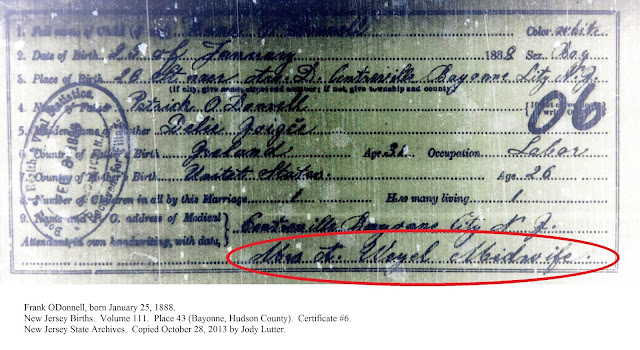 1. Full name of Child
Color. White
2. Date of Birth 25 of January 1888 Sex, Boy
3. Place of Birth, Centreville Bayonne City N. J.
(If city, give name, street and number; if not, give township and county)
4. Name of Father Patrick O. Donnell
06
5. Mother Delie
6. Country of Father's Birth Ireland Age, Occupation, Labor
7. Country of Mother's Birth United States Age, 26
8. Number of Children in all by this Marriage, 1 How many living, 1
9. Name and P. O. address of Medical Centreville Bayonne City N. J.
Attendant in own handwriting, with date, Mrs A. Weyel Midwife.
Frank ODonnell, born January 25, 1888.
New Jersey Births. Volume 111. Place 43 (Bayonne, Hudson County). Certificate #6.
New Jersey State Archives. Copied October 28, 2013 by Jody Lutter.